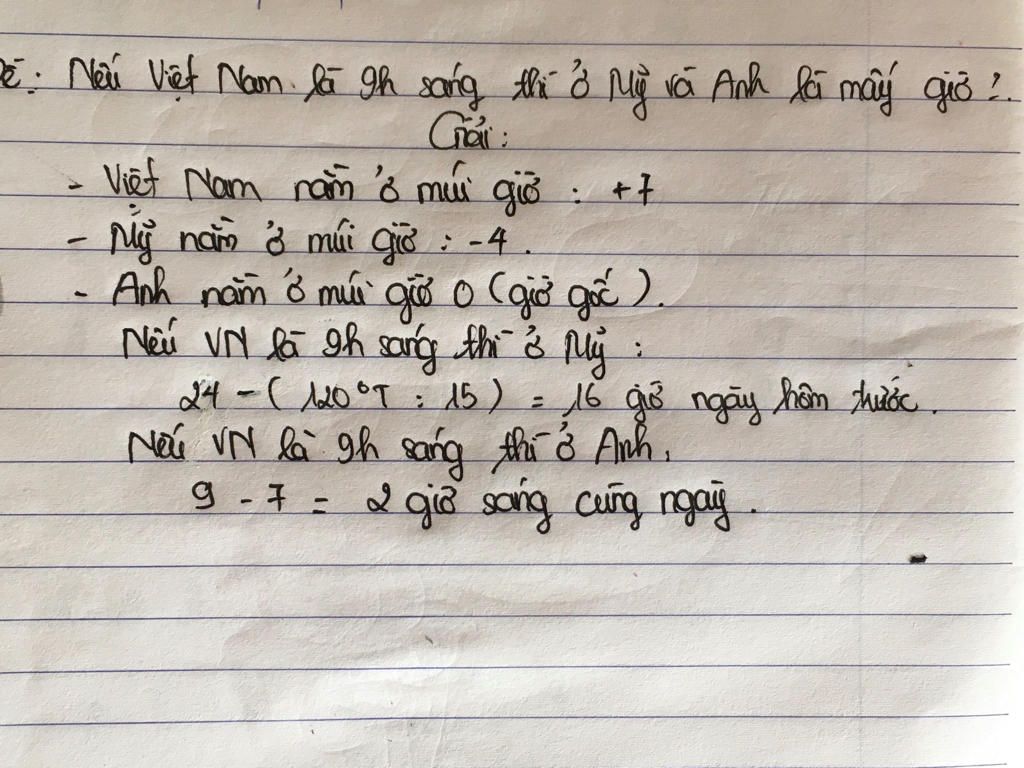 ề: Nếu Việt Nam là 9h sáng thì ở Mỹ và Anh là mấy giờ?.
Giải:
- Việt Nam nằm ở múi giờ : +7
- Mỹ nằm ở múi giờ : -4.
- Anh nằm ở múi giờ 0 (giờ gốc).
Nếu VN là 9h sáng thì ở Mỹ :
24 - ( 120°T : 15 ) = 16 giờ ngày hôm trước.
Nếu VN là 9h sáng thì ở Anh,
9 - 7 = 2 giờ sáng cùng ngày.